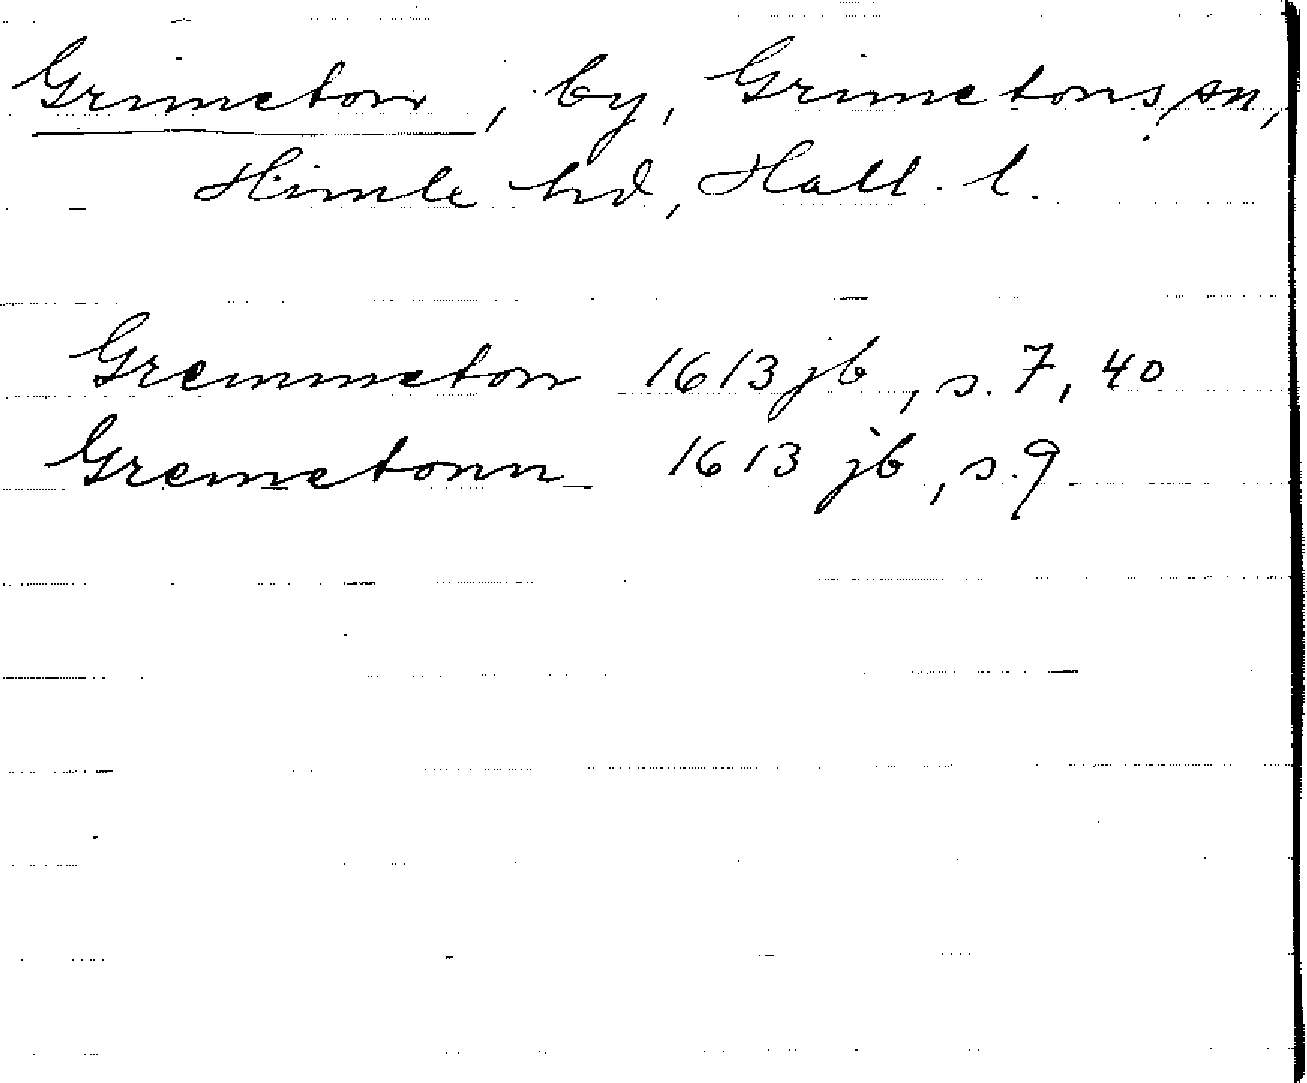 Grimeton, by, Grimetons sn,
Himle hd, Hall. l.
Gremmeton 1613 jb, s. 7, 40
Gremetonn 1613 jb, s. 9